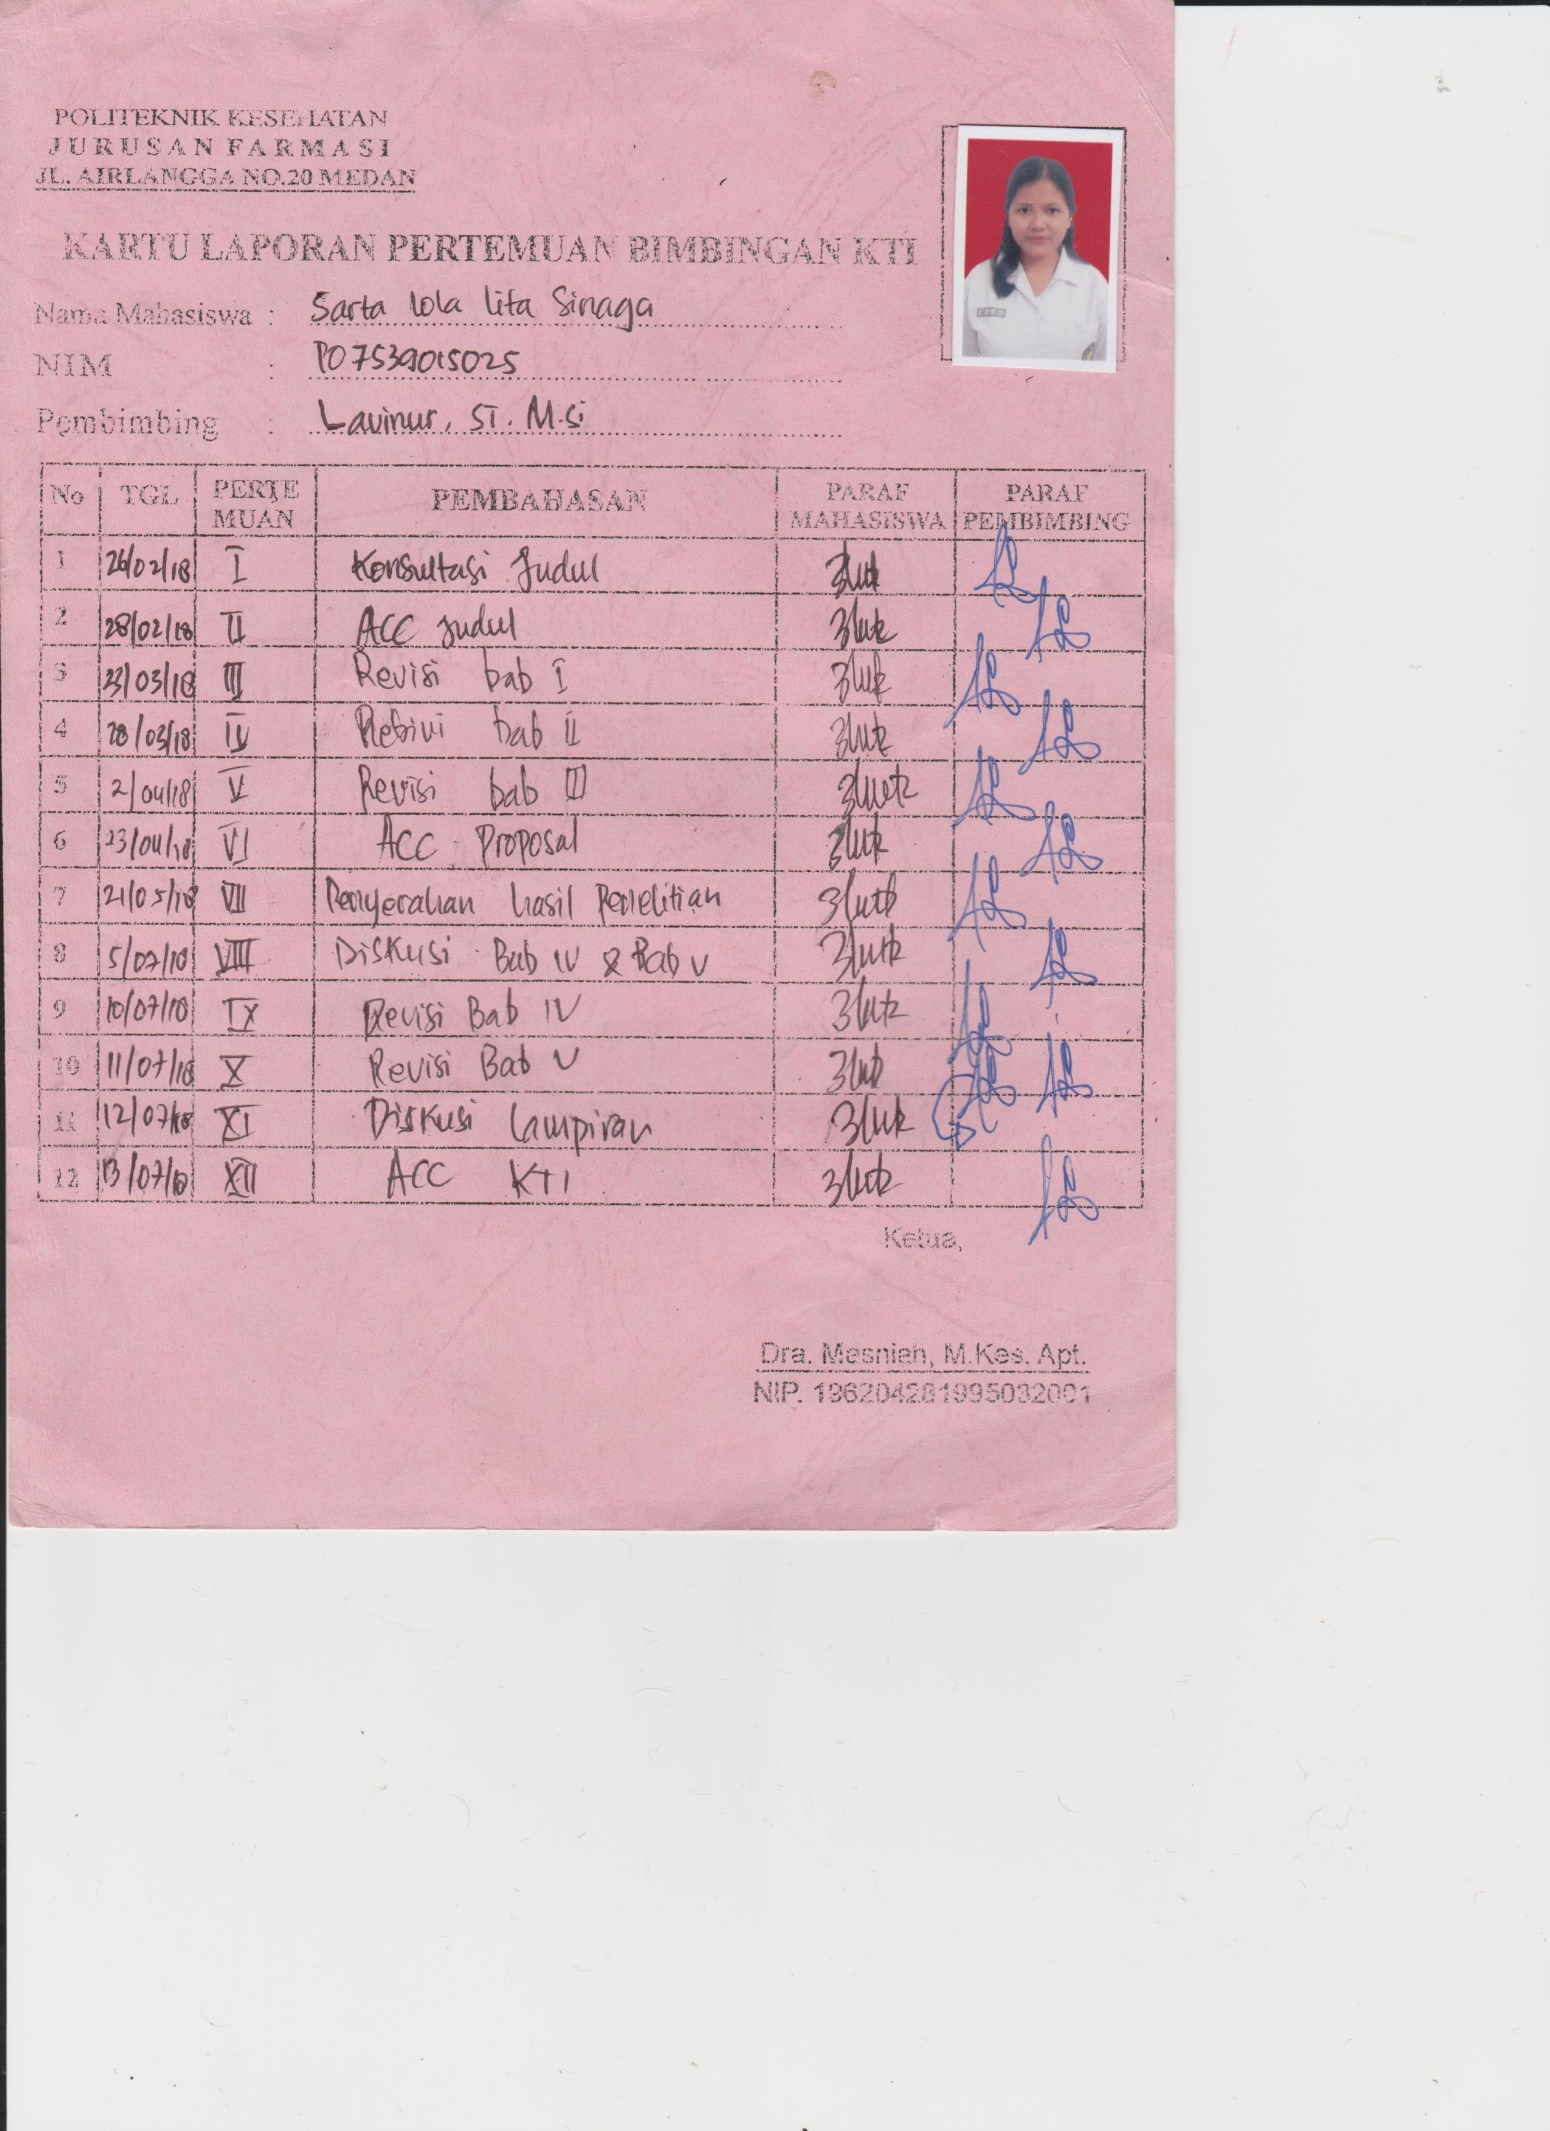 POLITEKNIK KESEHATAN
JURUSAN FARMASI
JL. AIRLANGGA NO.20 MEDAN
KARTU LAPORAN PERTEMUAN BIMBINGAN KTI
Nama Mahasiswa : Sarta lola lita Sinaga
NIM : PO7539015025
Pembimbing : Lavinur, ST. M.Si
No TGL PERTE MUAN PEMBAHASAN PARAF MAHASISWA PARAF PEMBIMBING
1 26/02/18 I Konsultasi Judul
2 28/02/18 II ACC Judul
3 23/03/18 III Revisi bab I
4 28/03/18 IV bab II
5 2/04/18 V Revisi bab III
6 23/04/18 VI ACC Proposal
7 21/05/18 VII Penyerahan hasil Penelitian
8 5/07/18 VIII Diskusi Bab IV & Bab V
9 10/07/18 IX Revisi Bab IV
10 11/07/18 X Revisi Bab V
11 12/07/18 XI Diskusi Lampiran
12 13/07/18 XII ACC KTI
Ketua,
Dra. Masniah, M.Kes. Apt.
NIP. 196204281995032001